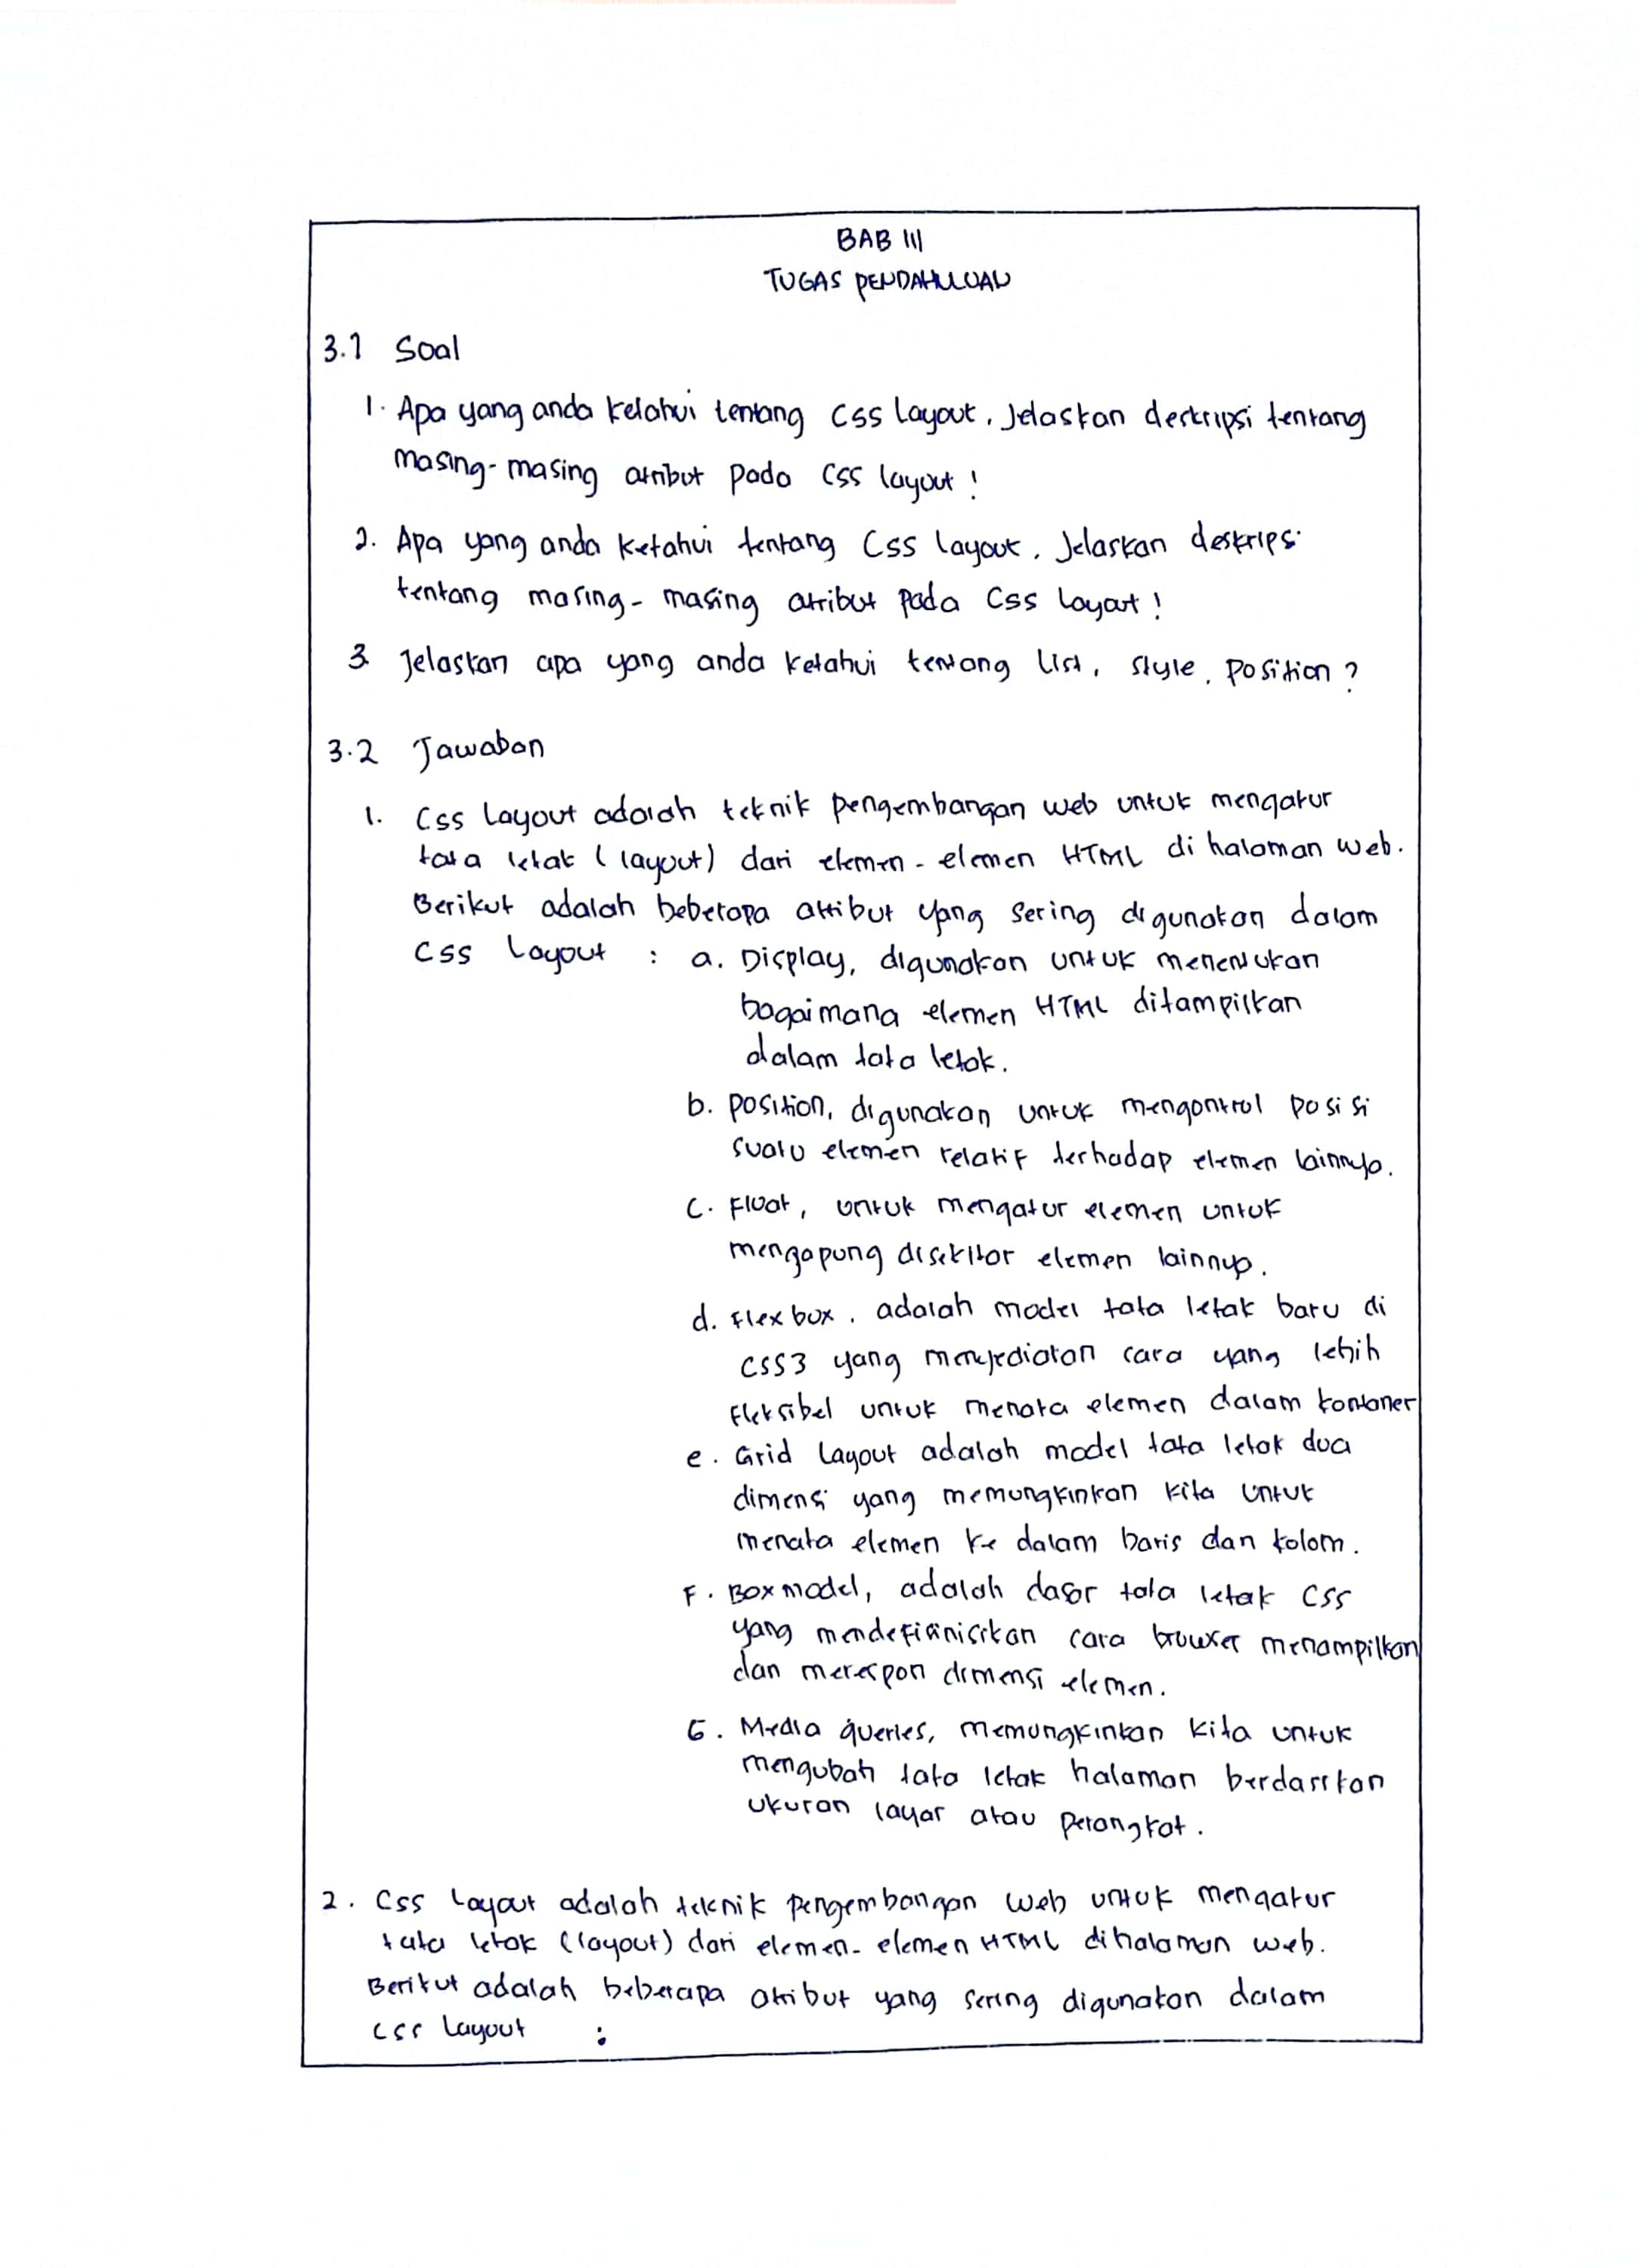 BAB III
TUGAS PENDAHULUAN
3.1 Soal
1. Apa yang anda ketahui tentang CSS layout, Jelaskan deskripsi tentang
masing-masing atribut pada CSS layout !
2. Apa yang anda ketahui tentang CSS layout, Jelaskan deskripsi
tentang masing-masing atribut pada CSS layout !
3 Jelaskan apa yang anda ketahui tentang list, style, position ?
3.2 Jawaban
1. CSS Layout adalah teknik pengembangan web untuk mengatur
tata letak (layout) dari elemen-elemen HTML di halaman web.
Berikut adalah beberapa attibut yang sering digunakan dalam
CSS Layout : a. Display, digunakan untuk menentukan
bagaimana elemen HTML ditampilkan
dalam tata letak.
b. position, digunakan untuk mengontrol posisi
suatu elemen relatif terhadap elemen lainnya.
c. Float, untuk mengatur elemen untuk
mengapung disekitar elemen lainnya.
d. Flexbox, adalah model tata letak baru di
CSS3 yang menyediakan cara yang lebih
fleksibel untuk menata elemen dalam kontaner
e. Grid Layout adalah model tata letak dua
dimensi yang memungkinkan kita untuk
menata elemen ke dalam baris dan kolom.
F. Box model, adalah dasar tata letak CSS
yang mendefianisikan cara browser menampilkan
dan merespon dimensi elemen.
G. Media queries, memungkinkan kita untuk
mengubah tata letak halaman berdasrkan
ukuran layar atau perangkat.
2. CSS Layout adalah teknik pengembangan web untuk mengatur
tata letak (layout) dari elemen-elemen HTML dihalaman web.
Berikut adalah beberapa atribut yang sering digunakan dalam
CSS Layout :